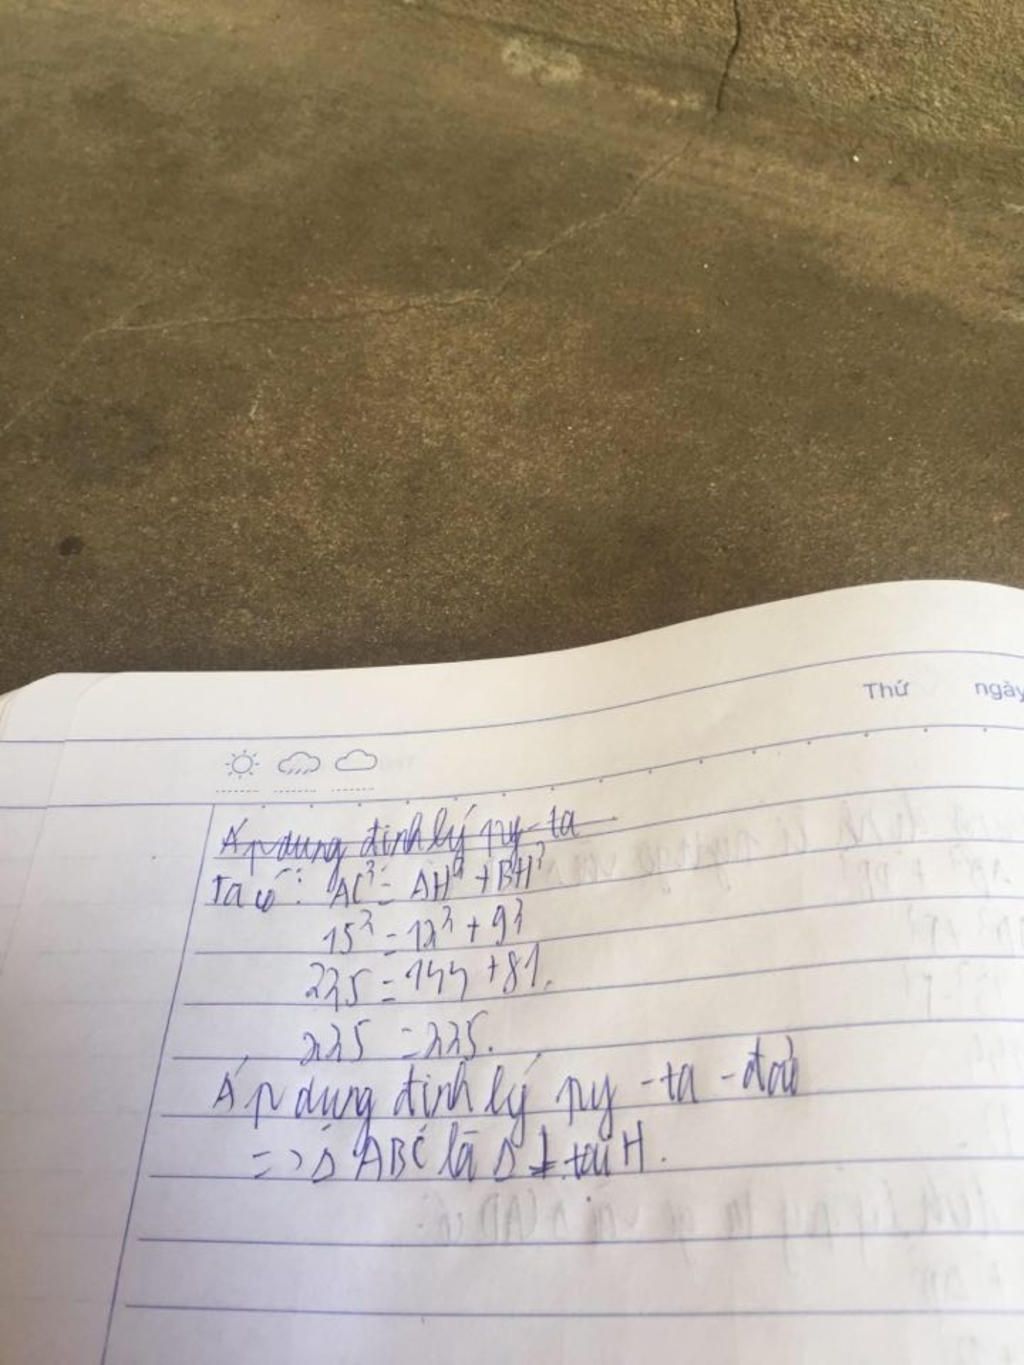 Thứ ngày
Áp dụng định lý py-ta
Ta có: AC² = AH² + BH²
15² = 12² + 9²
225 = 144 + 81.
225 = 225.
Áp dụng định lý py-ta-đảo
=> Δ ABC là Δ ⊥ tại H.